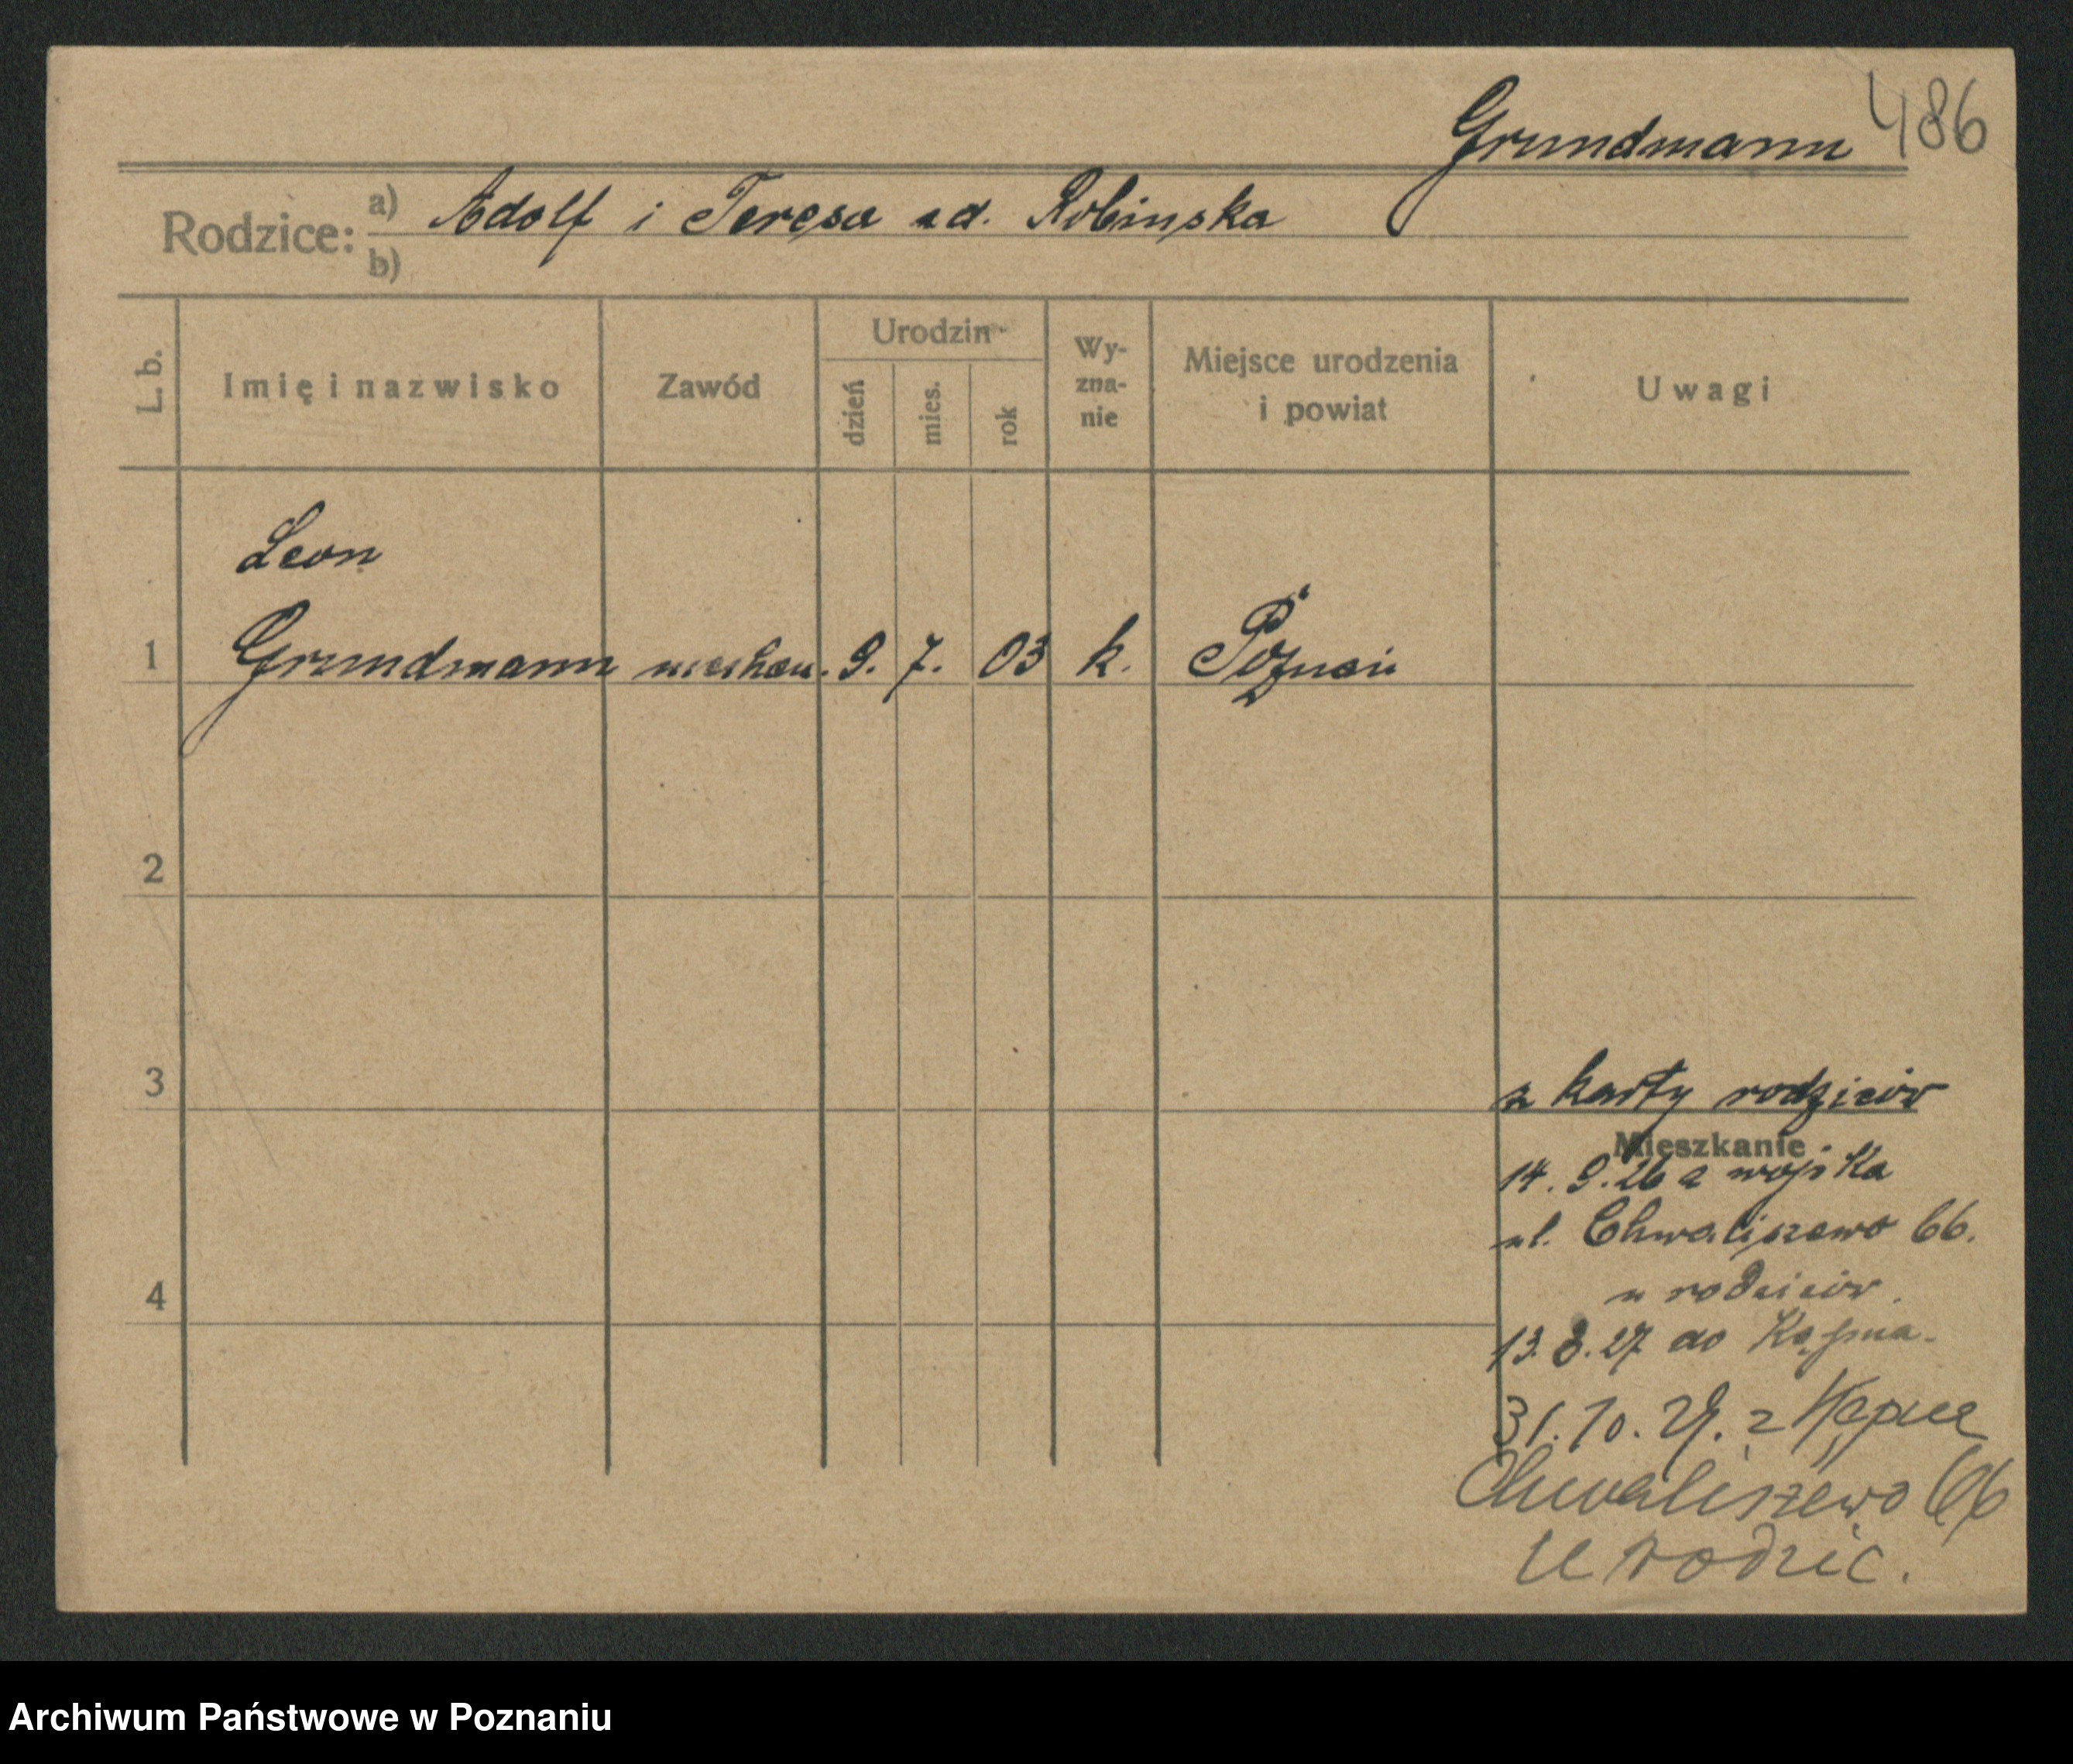 Grundmann 486
Rodzice: a) Adolf i Teresa Robinska
b)
L. b. Imię i nazwisko Zawód Urodzin Wy- Miejsce urodzenia Uwagi
dzień mies. rok zna- i powiat
nie
Leon
1 Grundmann mechan. 9. 7. 03 k. Poznań
2
3 z karty rodziców
Mieszkanie
14. 9. 26 z wojska
ul. Chwaliszewo 66.
4 u rodziców.
13. 8. 27 do
31. 10. z
Chwaliszewo 66
u rodzic.
Archiwum Państwowe w Poznaniu